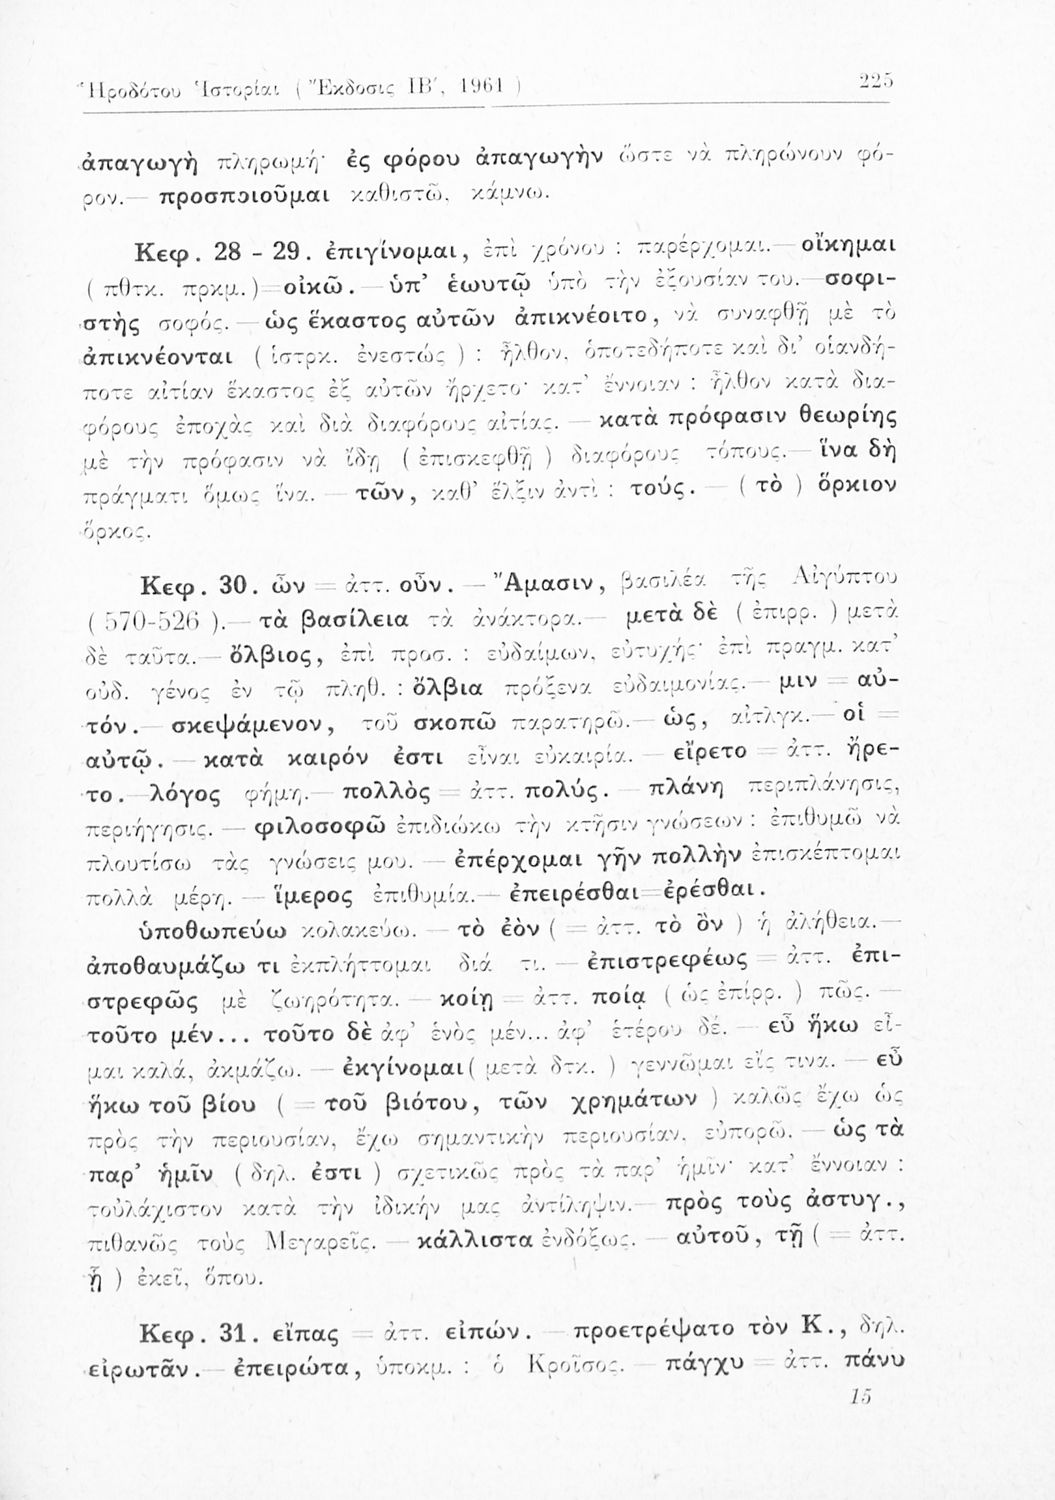 Ἡροδότου Ἱστορίαι ( Ἔκδοσις ΙΒ΄, 1961 ) 225
ἀπαγωγὴ πληρωμή· ἐς φόρου ἀπαγωγὴν ὥστε νὰ πληρώνουν φό-
ρον.— προσποιοῦμαι καθιστῶ, κάμνω.
Κεφ. 28 - 29. ἐπιγίνομαι, ἐπὶ χρόνου : παρέρχομαι.— οἴκημαι
( πθτκ. πρκμ.)=οἰκῶ.— ὑπ’ ἑωυτῷ ὑπὸ τὴν ἐξουσίαν του.—σοφι-
στὴς σοφός.—ὡς ἕκαστος αὐτῶν ἀπικνέοιτο, νὰ συναφθῇ μὲ τὸ
ἀπικνέονται ( ἱστρκ. ἐνεστώς ) : ἦλθον, ὁποτεδήποτε καὶ δι’ οἱανδή-
ποτε αἰτίαν ἕκαστος ἐξ αὐτῶν ἤρχετο· κατ’ ἔννοιαν : ἦλθον κατὰ δια-
φόρους ἐποχὰς καὶ διὰ διαφόρους αἰτίας. — κατὰ πρόφασιν θεωρίης
μὲ τὴν πρόφασιν νὰ ἴδῃ ( ἐπισκεφθῇ ) διαφόρους τόπους.— ἵνα δὴ
πράγματι ὅμως ἵνα. — τῶν, καθ’ ἕλξιν ἀντὶ : τούς. — ( τὸ ) ὅρκιον
ὅρκος.
Κεφ. 30. ὦν = ἀττ. οὖν. — Ἄμασιν, βασιλέα τῆς Αἰγύπτου
( 570-526 ).— τὰ βασίλεια τὰ ἀνάκτορα.— μετὰ δὲ ( ἐπιρρ. ) μετὰ
δὲ ταῦτα.— ὄλβιος, ἐπὶ προσ. : εὐδαίμων, εὐτυχής· ἐπὶ πραγμ. κατ’
οὐδ. γένος ἐν τῷ πληθ. : ὄλβια πρόξενα εὐδαιμονίας.— μιν = αὐ-
τόν.— σκεψάμενον, τοῦ σκοπῶ παρατηρῶ.— ὡς, αἰτλγκ.— οἱ =
αὐτῷ. — κατὰ καιρόν ἐστι εἶναι εὐκαιρία. — εἴρετο = ἀττ. ἤρε-
το.—λόγος φήμη.— πολλὸς = ἀττ. πολύς. — πλάνη περιπλάνησις,
περιήγησις. — φιλοσοφῶ ἐπιδιώκω τὴν κτῆσιν γνώσεων : ἐπιθυμῶ νὰ
πλουτίσω τὰς γνώσεις μου. — ἐπέρχομαι γῆν πολλὴν ἐπισκέπτομαι
πολλὰ μέρη. — ἵμερος ἐπιθυμία.— ἐπειρέσθαι=ἐρέσθαι.
ὑποθωπεύω κολακεύω. — τὸ ἐὸν ( = ἀττ. τὸ ὂν ) ἡ ἀλήθεια.—
ἀποθαυμάζω τι ἐκπλήττομαι διά τι. — ἐπιστρεφέως = ἀττ. ἐπι-
στρεφῶς μὲ ζωηρότητα. — κοίῃ = ἀττ. ποίᾳ ( ὡς ἐπίρρ. ) πῶς. —
τοῦτο μέν... τοῦτο δὲ ἀφ’ ἑνὸς μέν... ἀφ’ ἑτέρου δέ. — εὖ ἥκω εἶ-
μαι καλά, ἀκμάζω. — ἐκγίνομαι( μετὰ δτκ. ) γεννῶμαι εἴς τινα. — εὖ
ἥκω τοῦ βίου ( = τοῦ βιότου, τῶν χρημάτων ) καλῶς ἔχω ὡς
πρὸς τὴν περιουσίαν, ἔχω σημαντικὴν περιουσίαν, εὐπορῶ. — ὡς τὰ
παρ’ ἡμῖν ( δηλ. ἐστι ) σχετικῶς πρὸς τὰ παρ’ ἡμῖν· κατ’ ἔννοιαν :
τοὐλάχιστον κατὰ τὴν ἰδικήν μας ἀντίληψιν.— πρὸς τοὺς ἀστυγ.,
πιθανῶς τοὺς Μεγαρεῖς. — κάλλιστα ἐνδόξως. — αὐτοῦ, τῇ ( = ἀττ.
ᾗ ) ἐκεῖ, ὅπου.
Κεφ. 31. εἴπας = ἀττ. εἰπών. — προετρέψατο τὸν Κ., δηλ.
εἰρωτᾶν.— ἐπειρώτα, ὑποκμ. : ὁ Κροῖσος. — πάγχυ = ἀττ. πάνυ
15